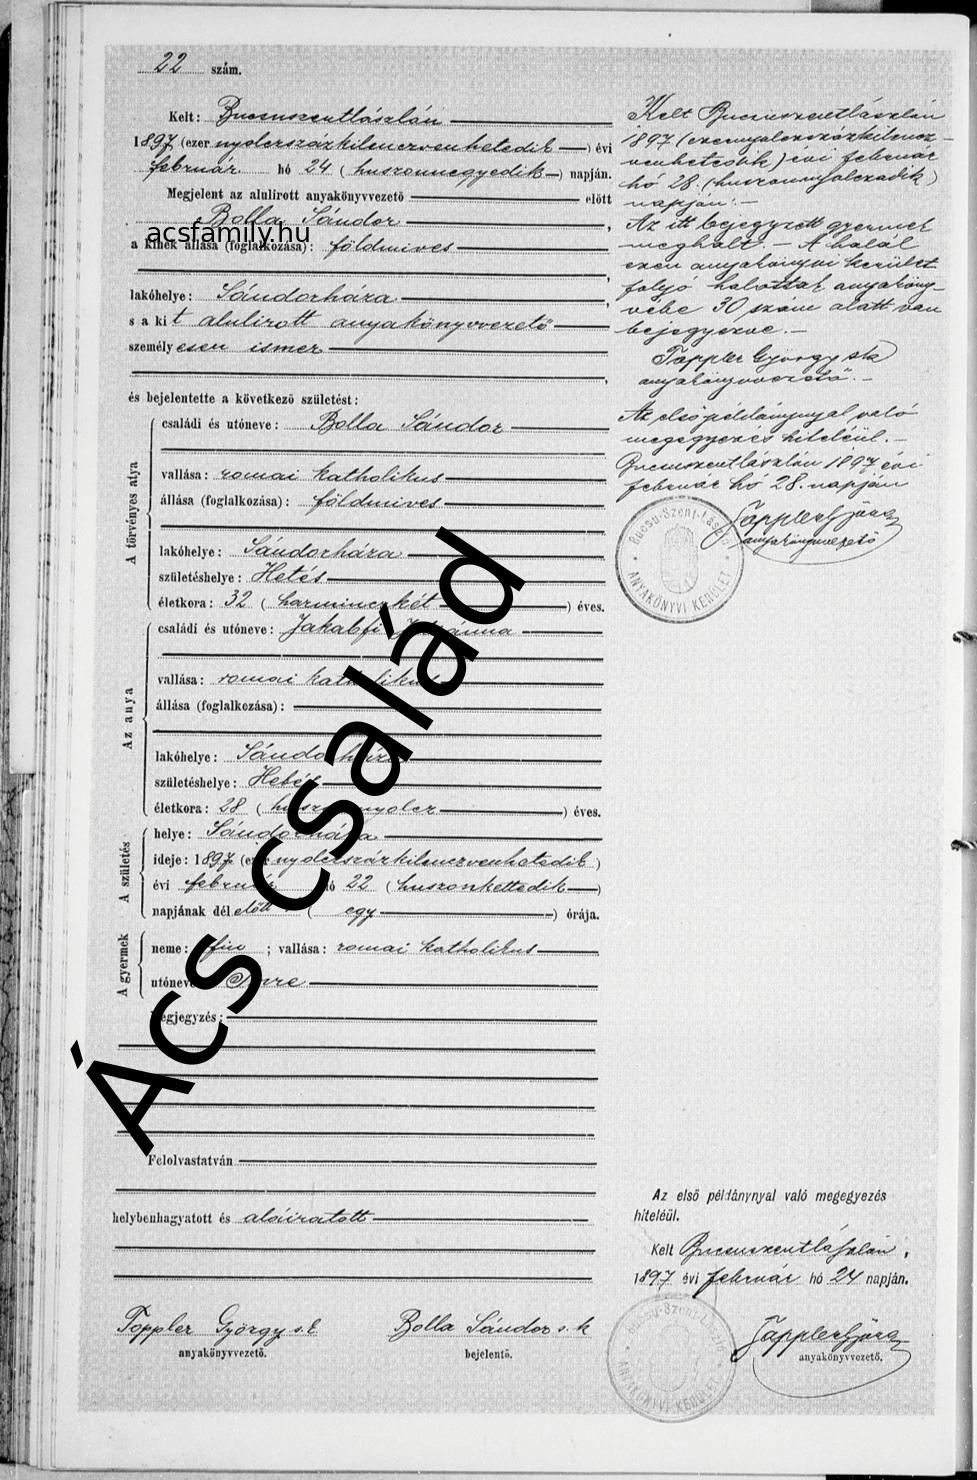 22 szám.
Kelt: Bucsuszentlászlón
1897 (ezer nyolcszázkilencvenhetedik) évi
február hó 24 (huszonnegyedik) napján.
Megjelent az alulirott anyakönyvvezető előtt
Bolla Sándor,
acsfamily.hu
a kinek állása (foglalkozása): földmives
lakóhelye: Sándorháza,
s a kit alulirott anyakönyvvezető
személyesen ismer,
és bejelentette a következő születést:
A törvényes atya
családi és utóneve: Bolla Sándor
vallása: romai katholikus
állása (foglalkozása): földmives
lakóhelye: Sándorháza
születéshelye: Hetés
életkora: 32 (harminczkét) éves.
Az anya
családi és utóneve: Jakabfi
vallása: romai katholikus
állása (foglalkozása):
lakóhelye: Sándorháza
születéshelye:
életkora: 28 (huszonnyolcz) éves.
A születés
helye: Sándorháza
ideje: 1897 (ezer nyolcszázkilenczvenhetedik)
évi február hó 22 (huszonkettedik)
napjának délelőtt (egy) órája.
A gyermek
neme: fiu; vallása: romai katholikus
utóneve: Imre
Megjegyzés:
Felolvastatván
helybenhagyatott és aláiratott
Toppler György s.k
anyakönyvvezető.
Bolla Sándor s.k
bejelentő.
Kelt Bucsuszentlászlón
1897 (ezernyolczszázkilencz-
venhetedik) évi február
hó 28. (huszonnyolczadik)
napján. –
Az itt bejegyzett gyermek
meghalt. – A halál
ezen anyakönyvi kerület
folyó halottak anyaköny-
vébe 30 szám alatt van
bejegyezve. –
Toppler György sk
anyakönyvvezető. –
Az első példánynyal való
megegyezés hiteléül. –
Bucsuszentlászlón 1897 évi
február hó 28. napján
Toppler György
anyakönyvvezető
Bucsu-Szent-László
ANYAKÖNYVI KERÜLET
Az első példánynyal való megegyezés
hiteléül.
Kelt Bucsuszentlászlón,
1897 évi február hó 24 napján.
Toppler György
anyakönyvvezető.
Bucsu-Szent-László
ANYAKÖNYVI KERÜLET
Ács család